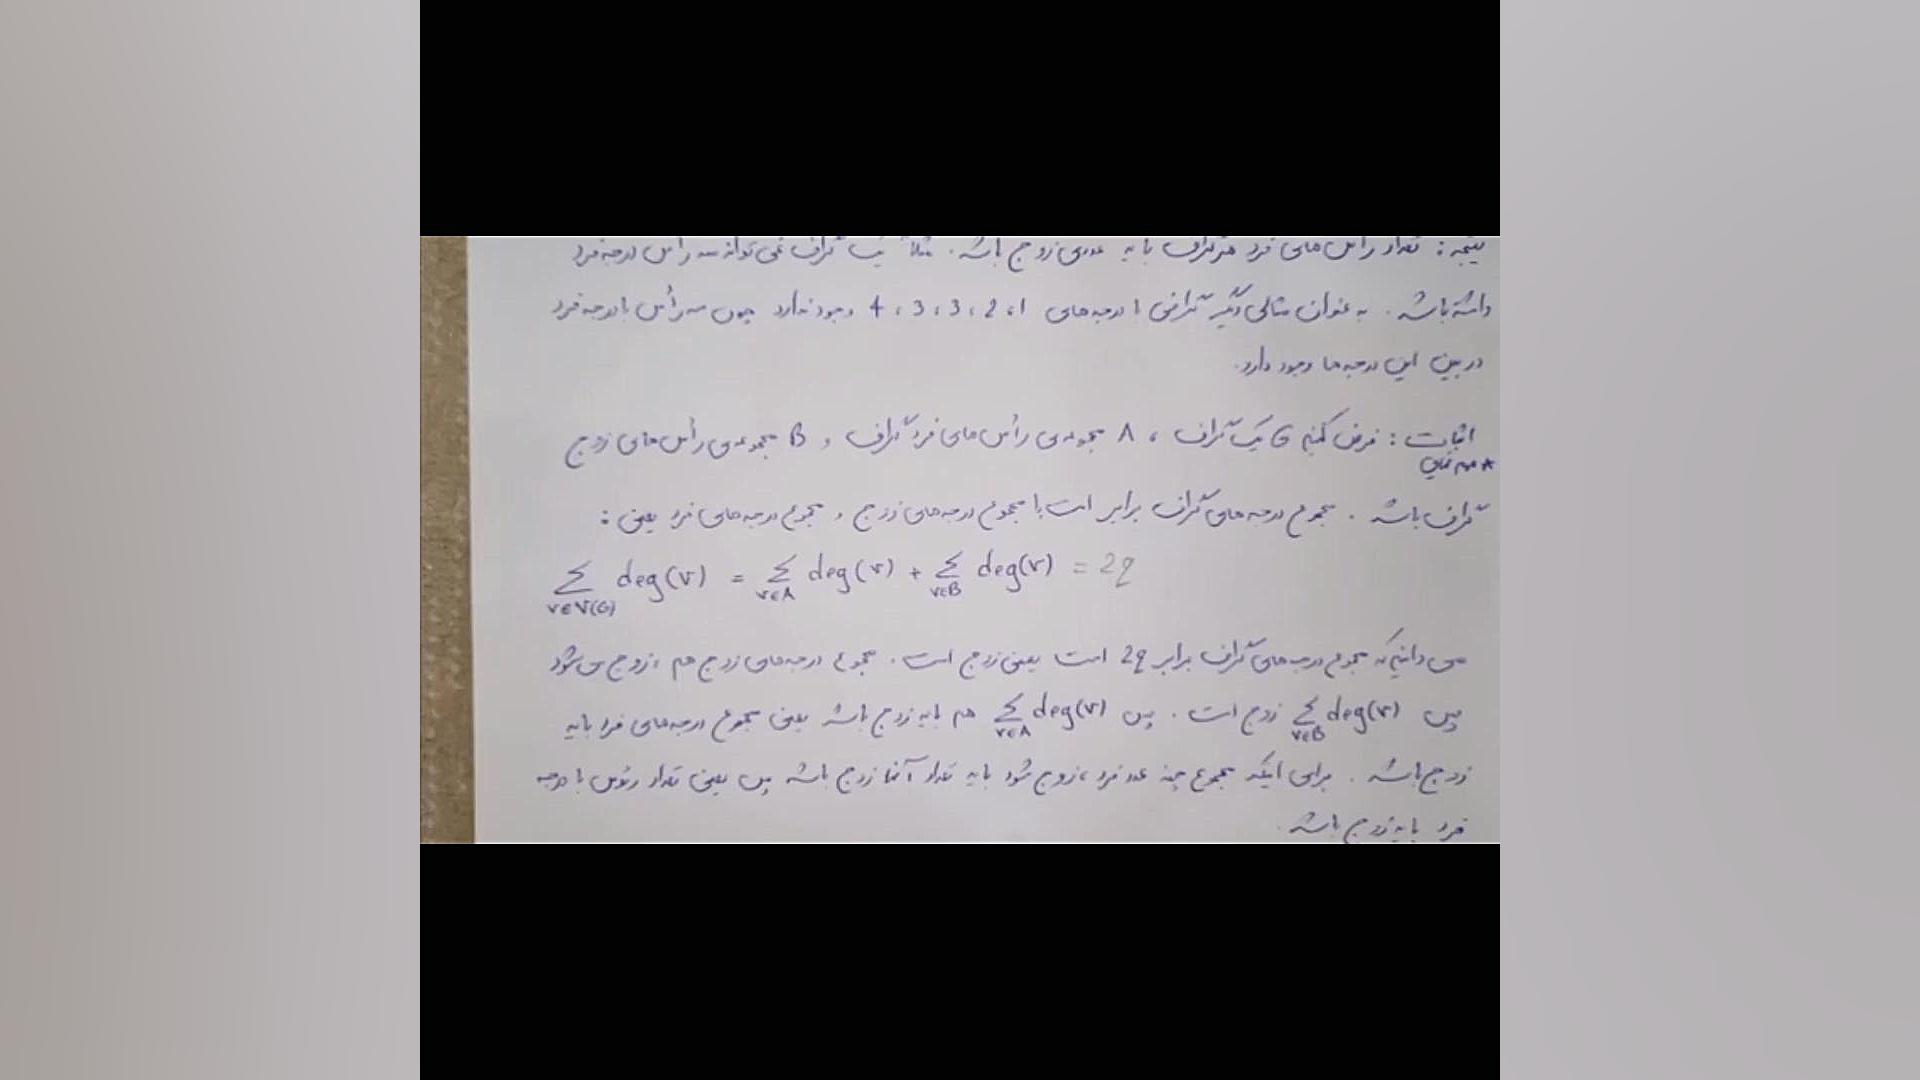 نتیجه : تعداد رأس های فرد هر گراف باید عددی زوج باشد . مثلاً یک گراف نمی تواند سه رأس درجه فرد
داشته باشد . به عنوان مثالی دیگر گرافی با درجه های 1 ، 2 ، 3 ، 3 ، 4 وجود ندارد چون سه رأس با درجه فرد
در بین این درجه ها وجود دارد .
اثبات : فرض کنیم G یک گراف ، A مجموعه ی رأس های فرد گراف و B مجموعه ی رأس های زوج
گراف باشد . مجموع درجه های گراف برابر است با مجموع درجه های زوج و مجموع درجه های فرد یعنی :
∑ deg(v) = ∑ deg(v) + ∑ deg(v) = 2q
v∈V(G) v∈A v∈B
می دانیم که مجموع درجه های گراف برابر 2q است یعنی زوج است . مجموع درجه های زوج هم ، زوج می شود
پس ∑ deg(v) زوج است . پس ∑ deg(v) هم باید زوج باشد یعنی مجموع درجه های فرد باید
v∈B v∈A
زوج باشد . برای اینکه مجموع چند عدد فرد ، زوج شود باید تعداد آنها زوج باشد پس یعنی تعداد رئوس با درجه
فرد باید زوج باشد .